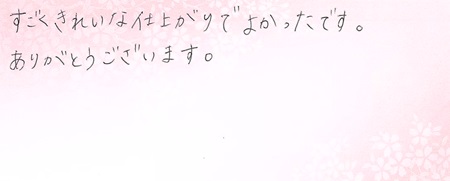 すごくきれいな仕上がりでよかったです。
ありがとうございます。